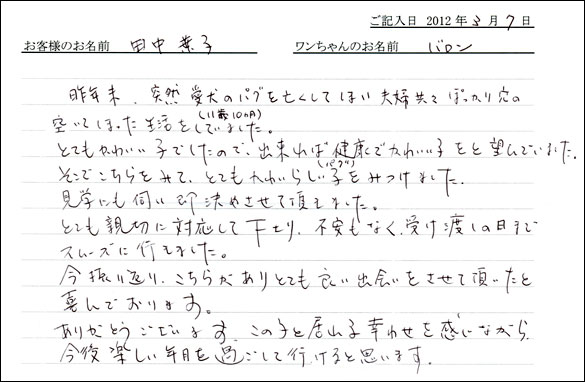 ご記入日 2012 年 3 月 7 日
お客様のお名前 田中 葉子 ワンちゃんのお名前 バロン
昨年末、突然愛犬のパグを亡くしてしまい夫婦共々ぽっかり穴の
(11歳10ヵ月)
空いてしまった生活をしていました。
とてもかわいい子でしたので、出来れば健康でかわいい子をと望んでいました。
(パグ)
そこでこちらをみて、とてもかわいらしい子をみつけました。
見学にも伺い即決めさせて頂きました。
とても親切に対応して下さり、不安もなく、受け渡しの日まで
スムーズに行えました。
今振り返り、こちらがありとても良い出会いをさせて頂いたと
喜んでおります。
ありがとうございます。この子と居れる幸わせを感じながら、
今後楽しい年月を過ごして行けると思います。